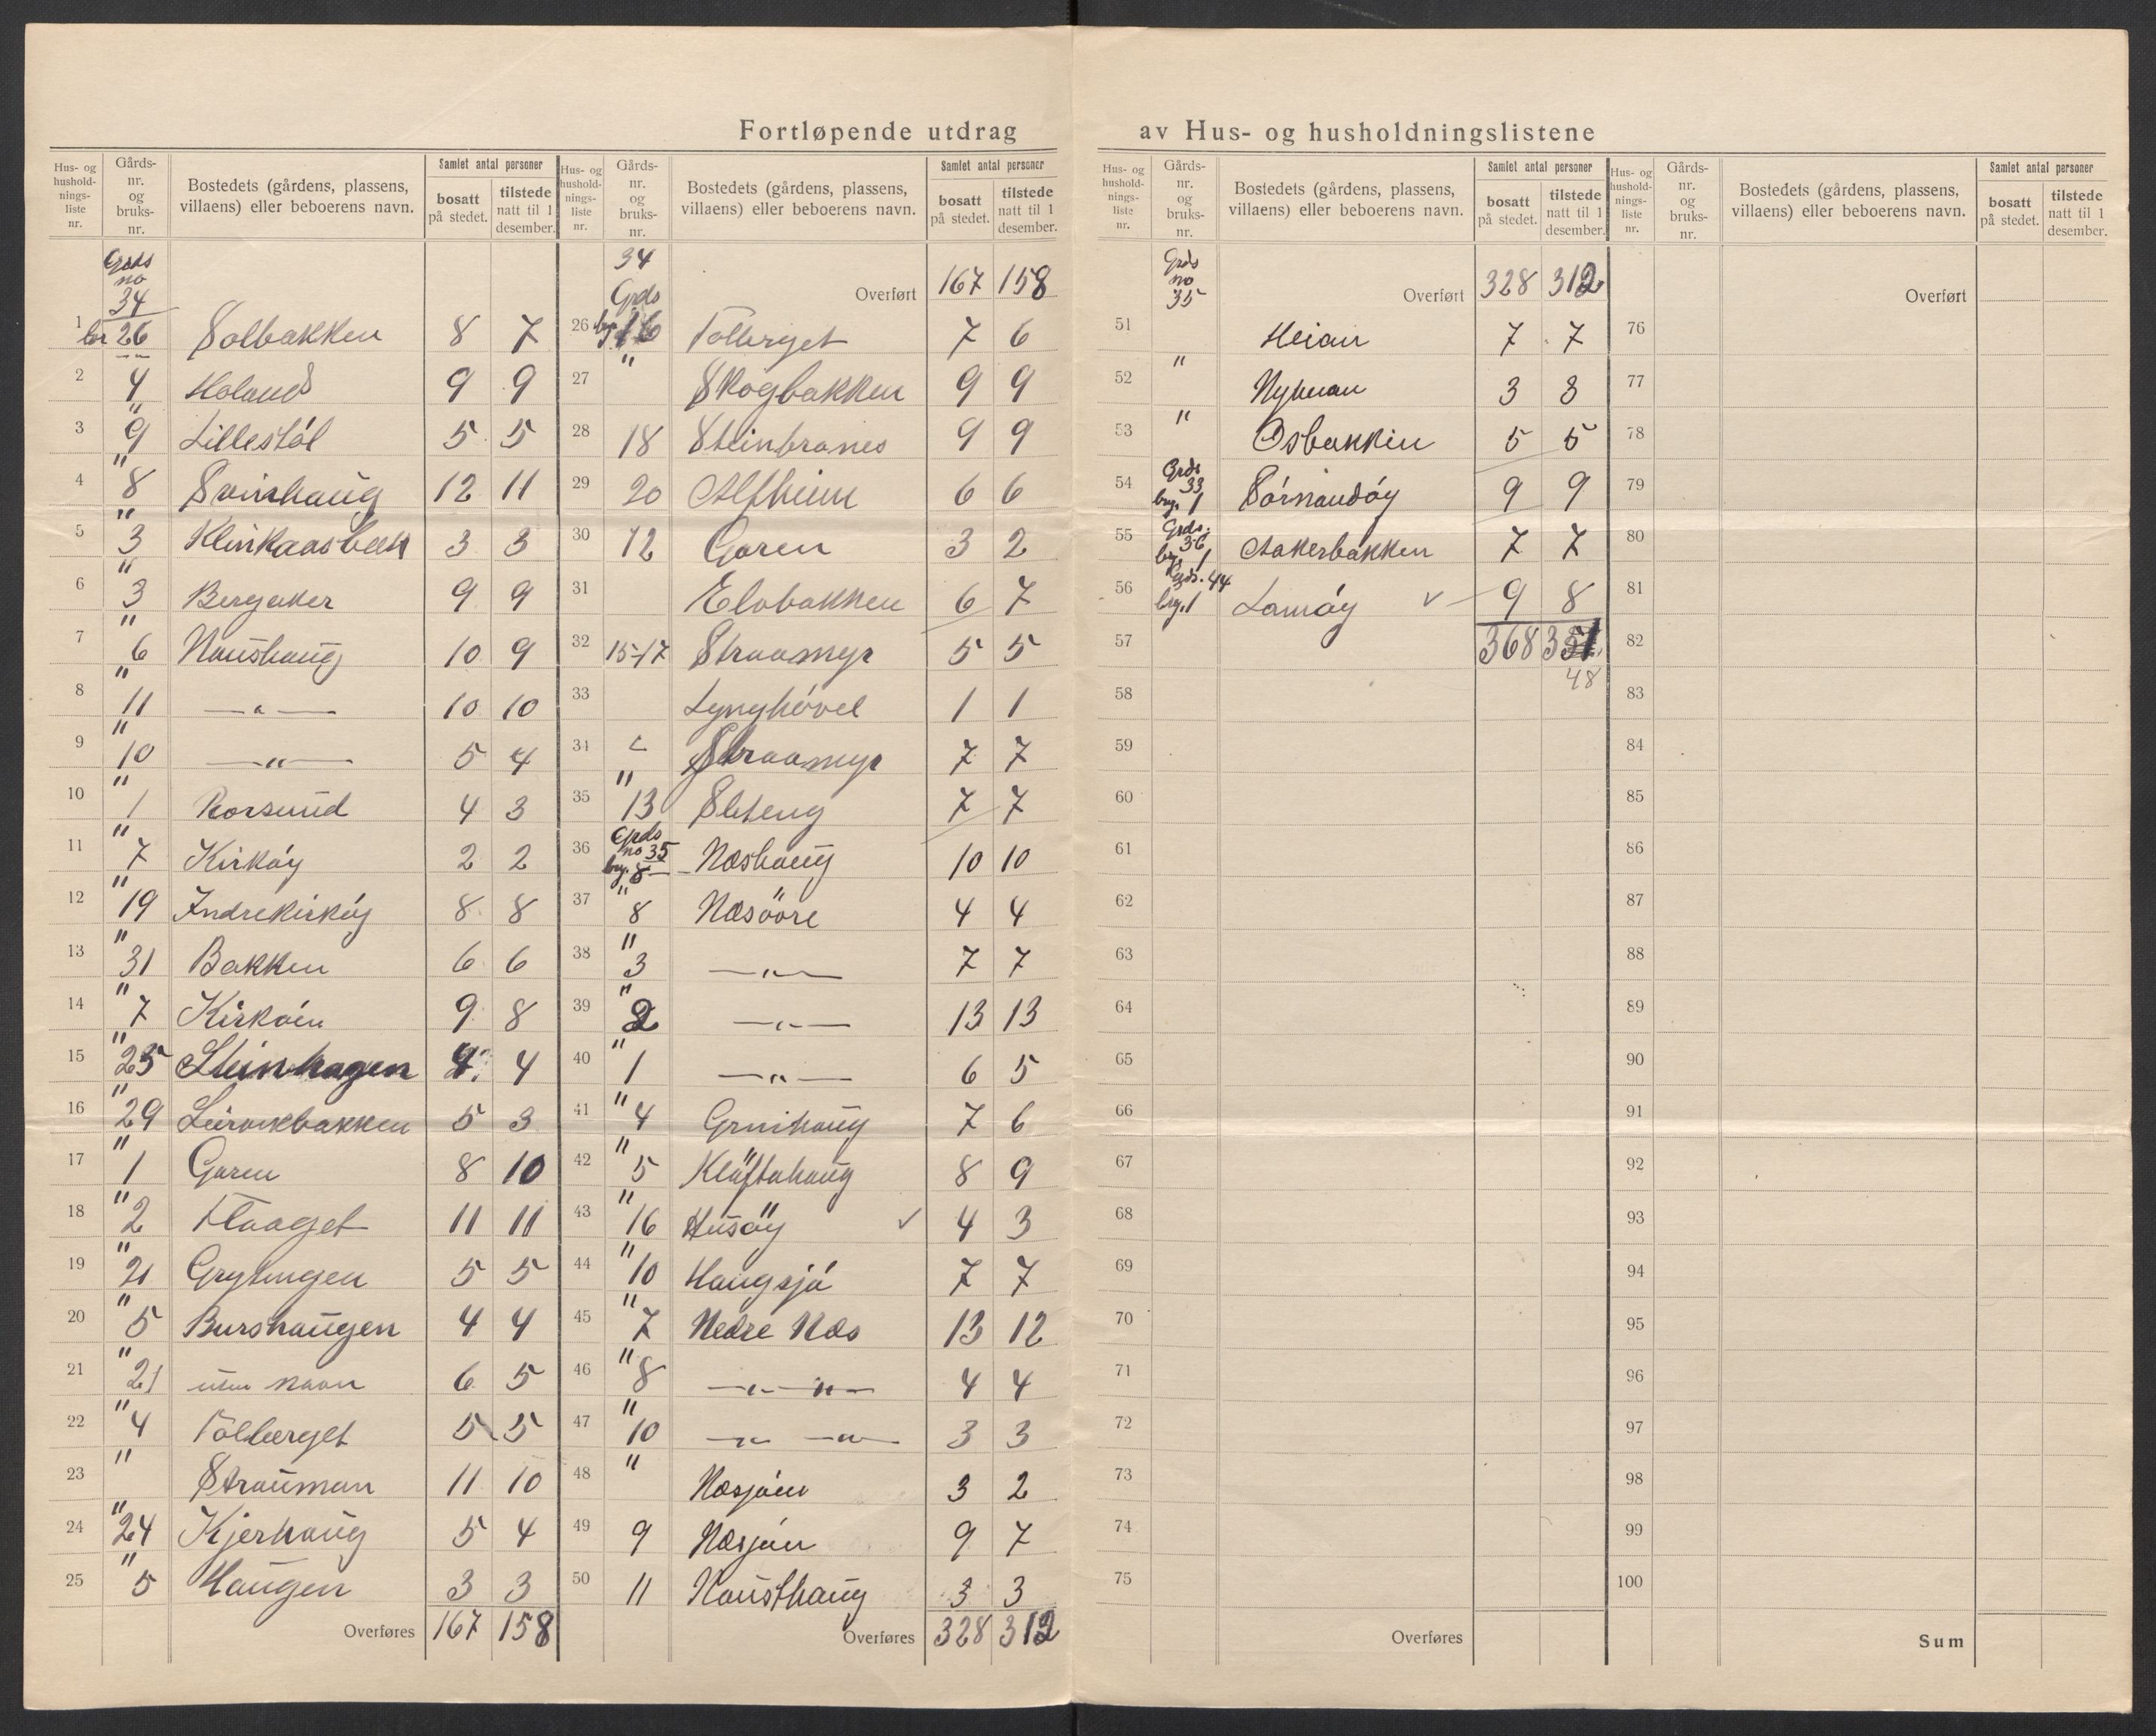 Fortløpende utdrag av Hus- og husholdningslistene
Hus- og hushold-nings-liste nr. Gårds-nr. og bruks-nr. Bostedets (gårdens, plassens, villaens) eller beboerens navn. Samlet antal personer bosatt på stedet. tilstede natt til 1 desember.
Grds no 34
1 br 26 Solbakken 8 7
2 " 4 Holand 9 9
3 " 9 Lillestøl 5 5
4 " 8 Svinhaug 12 11
5 " 3 3 3
6 " 3 Bergaker 9 9
7 " 6 Naushaug 10 9
8 " 11 —"— 10 10
9 " 10 —"— 5 4
10 " 1 Korsund 4 3
11 " 7 Kirköy 2 2
12 " 19 Indrekirköy 8 8
13 " 31 Bakken 6 6
14 " 7 Kirköin 9 8
15 " 25 Steinhagen 4 4
16 " 29 Leirvikbakken 5 3
17 " 1 Garen 8 10
18 " 2 Flaaget 11 11
19 " 21 Grytingen 5 5
20 " 5 Burshaugen 4 4
21 " 21 uten navn 6 5
22 " 4 Tolberget 5 5
23 " Strauman 11 10
24 " 24 Kjerhaug 5 4
25 " 5 Haugen 3 3
Overføres 167 158
Hus- og hushold-nings-liste nr. Gårds-nr. og bruks-nr. Bostedets (gårdens, plassens, villaens) eller beboerens navn. Samlet antal personer bosatt på stedet. tilstede natt til 1 desember.
34 Grds Overført 167 158
26 brg. 16 Tolberget 7 6
27 " Skogbakken 9 9
28 18 Steinbranes 9 9
29 20 Alfheim 6 6
30 12 Garen 3 2
31 Elvbakken 6 7
32 15-17 Straamyr 5 5
33 Lynghövel 1 1
34 " Straamyr 7 7
35 " 13 Sleteng 7 7
36 Grds no 35 brg. 8 Næshaug 10 10
37 " 8 Næsöore 4 4
38 " 3 —"— 7 7
39 " 2 —"— 13 13
40 " 1 —"— 6 5
41 " 4 Grnihaug 7 6
42 " 5 Kläftahaug 8 9
43 " 16 Husöy ✓ 4 3
44 " 10 Haugsjö 7 7
45 " 7 Nedre Næs 13 12
46 " 8 —"— —"— 4 4
47 " 10 —"— —"— 3 3
48 " Næsjöen 3 2
49 9 Næsjöen 9 7
50 11 Nausthaug 3 3
Overføres 328 312
Hus- og hushold-nings-liste nr. Gårds-nr. og bruks-nr. Bostedets (gårdens, plassens, villaens) eller beboerens navn. Samlet antal personer bosatt på stedet. tilstede natt til 1 desember.
Grds no 35 Overført 328 312
51 Heian 7 7
52 " Nyheran 3 8
53 " Osbakkin 5 5
54 Grds 33 brg. 1 Sörnaudöy 9 9
55 Grds. 36 brg. 1 Aakerbakken 7 7
56 Grds. 44 brg. 1 Lamöy ✓ 9 8
57 368 351
58 48
59
60
61
62
63
64
65
66
67
68
69
70
71
72
73
74
75
Overføres
Hus- og hushold-nings-liste nr. Gårds-nr. og bruks-nr. Bostedets (gårdens, plassens, villaens) eller beboerens navn. Samlet antal personer bosatt på stedet. tilstede natt til 1 desember.
Overført
76
77
78
79
80
81
82
83
84
85
86
87
88
89
90
91
92
93
94
95
96
97
98
99
100
Sum